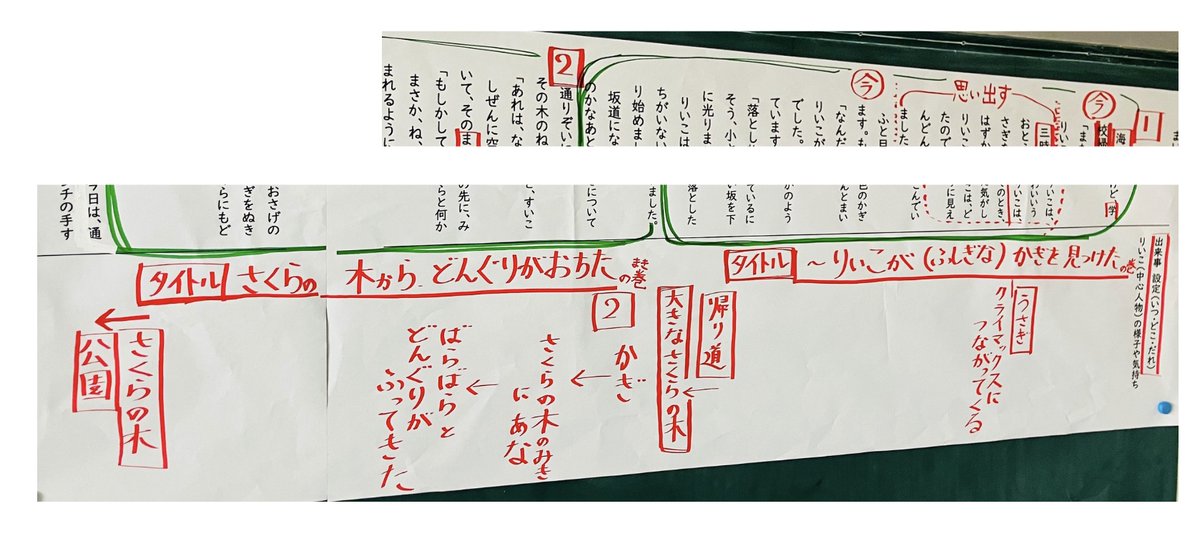 1
今
思い出す
今
2
おと
さぎ
はずか
りいこ
たので
んどん
ました
ふと見
ます。も
「なんだ
りいこが
でした。
ています
「落とし
そう、小
に光りま
りいこは
ちがいな
り始めま
坂道にな
のかなあと
通りぞい
その木のね
「あれは、な
しぜんに空
いて、そのま
「もしかして
まさか、ね、
まれるように
けど 学
いこは、
わいいう
こは、
のとき、
な気がし
いこは、ど
に見え
こんでい
色のかぎ
んとまい
かのよう
ているに
い坂を下
落とした
ました。
こについて
と、すいこ
の先に、み
らと何か
おさげの
ぎをぬき
らにもど
今日は、通
ンチの手す
出来事 設定(いつ・どこ・だれ)
りいこ(中心人物)の様子や気持ち
タイトル ～りいこが(ふしぎな)かぎを見つけたの巻
うさぎ
クライマックスに
つながってくる
帰り道
大きなさくらの木
タイトル さくらの木から どんぐりがおちたの巻
まき
2
かぎ
さくらの木のみき
にあな
ばらばらと
どんぐりが
ふってきた
さくらの木
公園